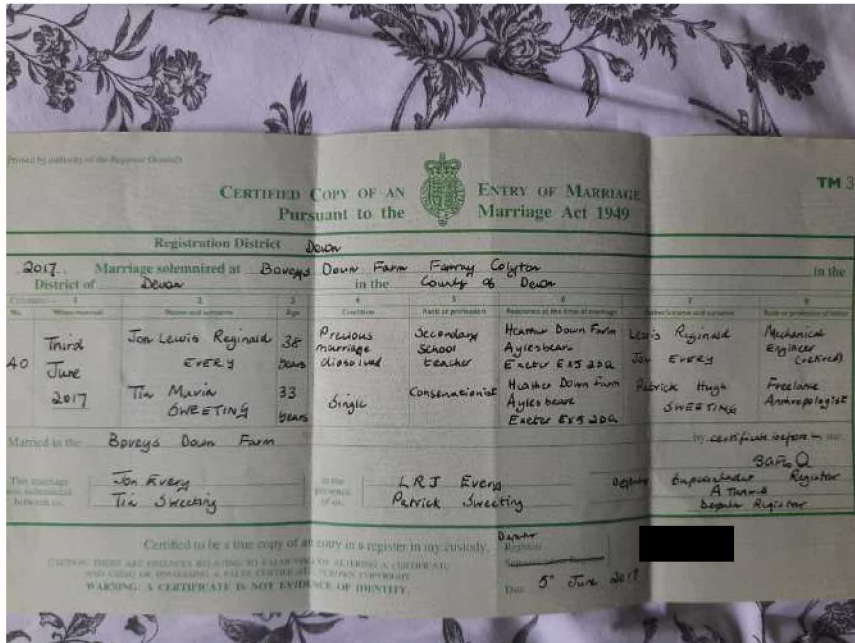 Printed by authority of the Registrar General
TM 3
CERTIFIED COPY OF AN ENTRY OF MARRIAGE
Pursuant to the Marriage Act 1949
Registration District Devon
2017. Marriage solemnized at Boveys Down Farm Farway Colyton in the
District of Devon in the County of Devon
1 2 3 4 5 6 7 8
No. When married Name and surname Age Condition Rank or profession Residence at the time of marriage Father's name and surname Rank or profession of father
40 Third June 2017
Jon Lewis Reginald EVERY 38 years Previous marriage dissolved Secondary school teacher Heather Down Farm Aylesbeare Exeter EX5 2DQ Lewis Reginald Jon EVERY Mechanical Engineer (retired)
Tia Maria SWEETING 33 years Single Conservationist Heather Down Farm Aylesbeare Exeter EX5 2DQ Patrick Hugh SWEETING Freelance Anthropologist
Married in the Boveys Down Farm by certificate before me,
This marriage was solemnized between us,
Jon Every
Tia Sweeting
in the presence of us,
LRJ Every
Patrick Sweeting
Deputy Superintendent Registrar
Deputy Registrar
Certified to be a true copy of an entry in a register in my custody.
Deputy Registrar
Superintendent Registrar
Date 5th June 2017
CAUTION: THERE ARE OFFENCES RELATING TO FALSIFYING OR ALTERING A CERTIFICATE
AND USING OR POSSESSING A FALSE CERTIFICATE. CROWN COPYRIGHT
WARNING: A CERTIFICATE IS NOT EVIDENCE OF IDENTITY.